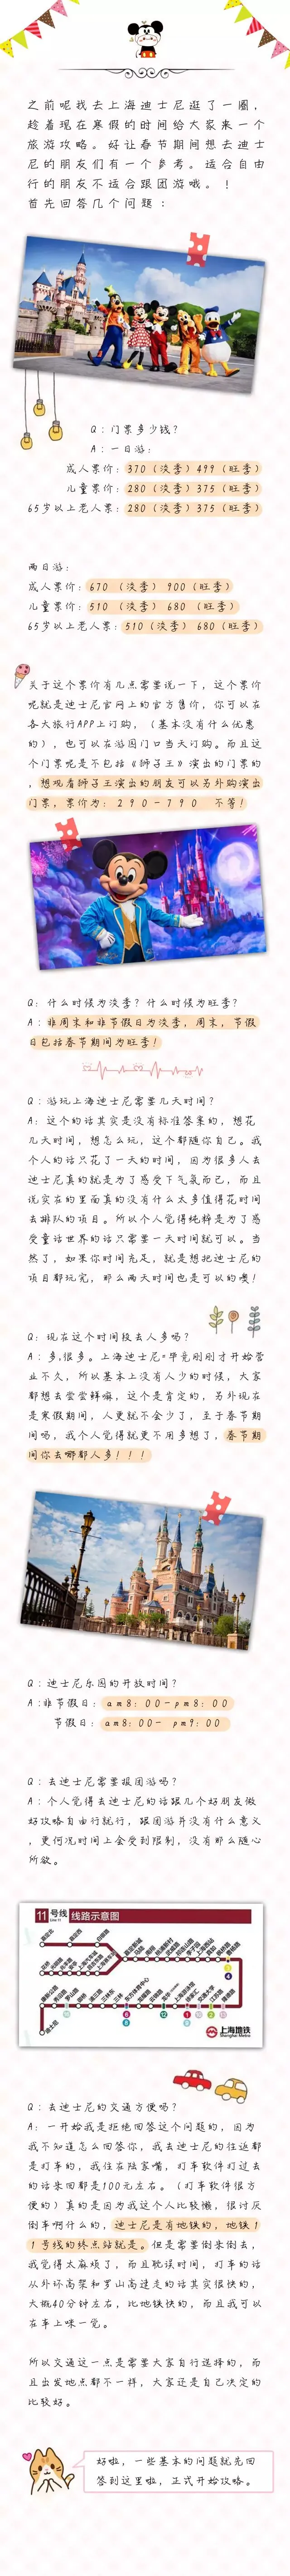 之前呢我去上海迪士尼逛了一圈，
趁着现在寒假的时间给大家来一个
旅游攻略。好让春节期间想去迪士
尼的朋友们有一个参考。适合自由
行的朋友不适合跟团游哦。！
首先回答几个问题：
Q：门票多少钱？
A：一日游：
成人票价：370（淡季）499（旺季）
儿童票价：280（淡季）375（旺季）
65岁以上老人票：280（淡季）375（旺季）
两日游：
成人票价：670（淡季） 900（旺季）
儿童票价：510 （淡季） 680 （旺季）
65岁以上老人票：510（淡季） 680（旺季）
关于这个票价有几点需要说一下，这个票价
呢就是迪士尼官网上的官方售价，你可以在
各大旅行APP上订购，（基本没有什么优惠
的），也可以在游园门口当天订购。而且这
个门票呢是不包括《狮子王》演出的门票的
，想观看狮子王演出的朋友可以另外购演出
门票，票价为：２９０－７９０ 不等！
Q：什么时候为淡季？什么时候为旺季？
A：非周末和非节假日为淡季，周末，节假
日包括春节期间为旺季！
Q：游玩上海迪士尼需要几天时间？
A：这个的话其实是没有标准答案的，想花
几天时间，想怎么玩，这个都随你自己。我
个人的话只花了一天的时间，因为很多人去
迪士尼真的就是为了感受下气氛而已，而且
说实在的里面真的没有什么太多值得花时间
去排队的项目。所以个人觉得纯粹是为了感
受童话世界的话只需要一天时间就可以。当
然了，如果你时间充足，就是想把迪士尼的
项目都玩完，那么两天时间也是可以的噢！
Q：现在这个时间段去人多吗？
A：多，很多。上海迪士尼=毕竟刚刚才开始营
业不久，所以基本上没有人少的时候，大家
都想去尝尝鲜嘛，这个是肯定的，另外现在
是寒假期间，人更就不会少了，至于春节期
间吗，我个人觉得就更不用多想了，春节期
间你去哪都人多！！！
Q：迪士尼乐园的开放时间？
A:非节假日：am8：00-pm8：00
节假日：am8：00- pm9：00
Q：去迪士尼需要报团游吗？
A：个人觉得去迪士尼的话跟几个好朋友做
好攻略自由行就行，跟团游并没有什么意义
，更何况时间上会受到限制，没有那么随心
所欲。
11 号线 线路示意图
Line 11
上海地铁
Shanghai Metro
Q：去迪士尼的交通方便吗？
A：一开始我是拒绝回答这个问题的，因为
我不知道怎么回答你，我去迪士尼的往返都
是打车的，我住在陆家嘴，打车软件打过去
的话来回都是100元左右。（打车软件很方
便的）真的是因为我这个人比较懒，很讨厌
倒车啊什么的，迪士尼是有地铁的，地铁１
１号线的终点站就是。但是需要倒来倒去，
我觉得太麻烦了，而且耽误时间，打车的话
从外环高架和罗山高速走的话其实很快的，
大概40分钟左右，比地铁快的，而且我可以
在车上眯一觉。
所以交通这一点是需要大家自行选择的，而
且出发地点都不一样，大家还是自己决定的
比较好。
好啦，一些基本的问题就先回
答到这里啦，正式开始攻略。